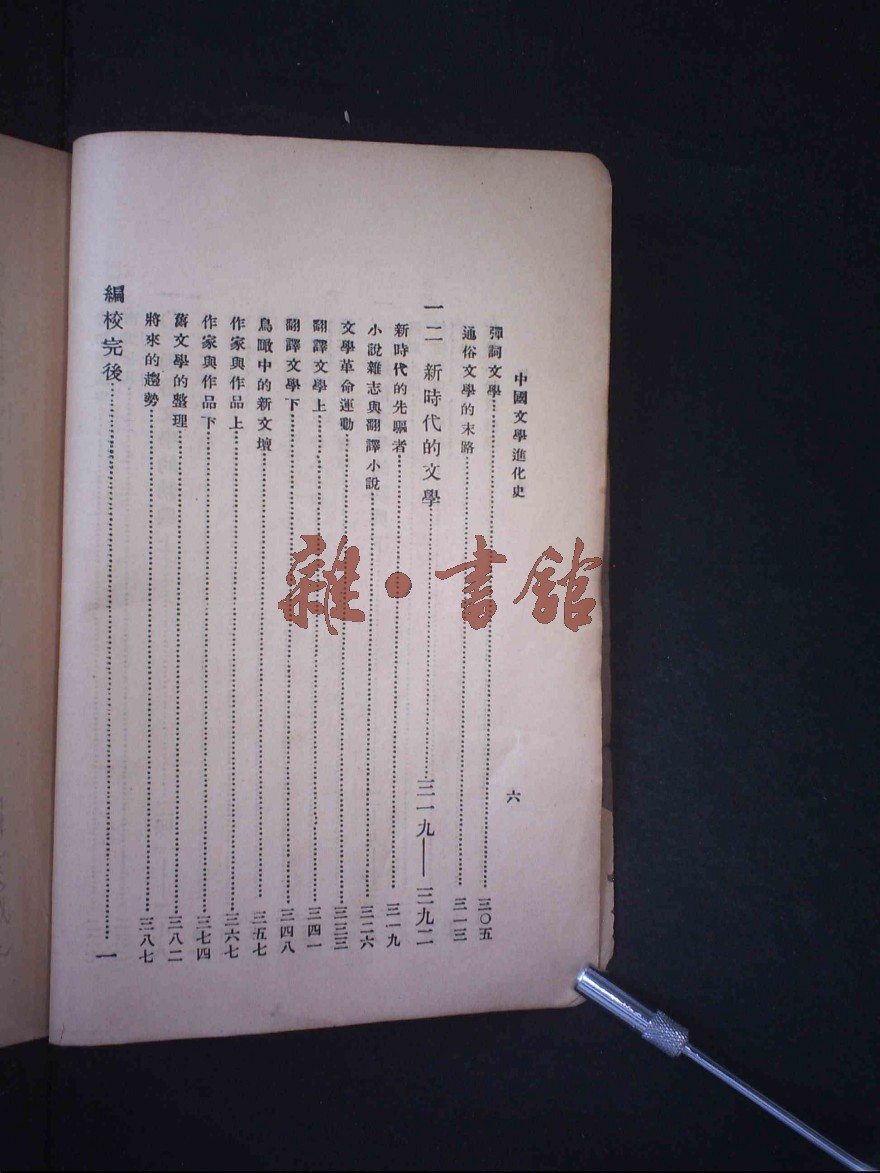 中國文學進化史
六
彈詞文學……三〇五
通俗文學的末路……三一三
一二 新時代的文學……三一九——三九二
新時代的先驅者……三一九
小說雜志與翻譯小說……三二六
文學革命運動……三三三
翻譯文學上……三四一
翻譯文學下……三四八
鳥瞰中的新文壇……三五七
作家與作品上……三六七
作家與作品下……三七四
舊文學的整理……三八二
將來的趨勢……三八七
編校完後……一
雜·書館